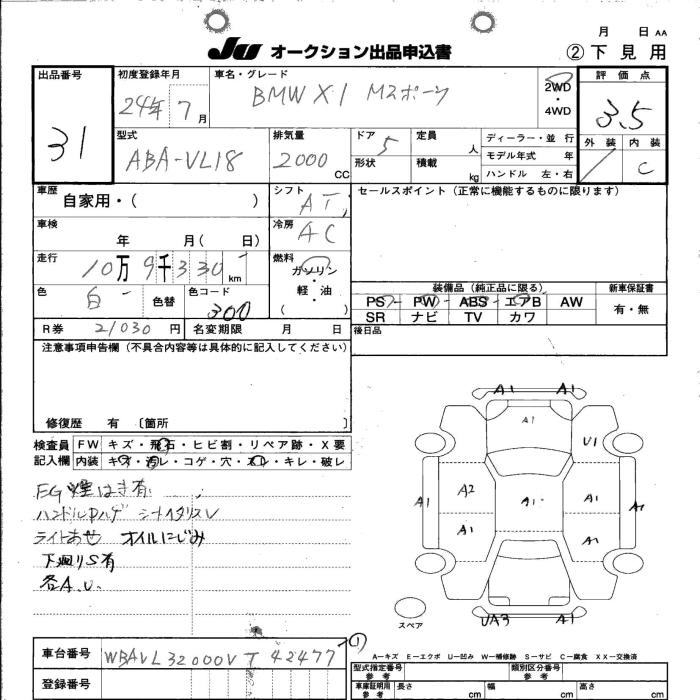 月 日 AA
JU オークション出品申込書 ②下見用
出品番号 31
初度登録年月 24年7月
車名・グレード BMW X1 Mスポーツ
2WD・4WD
評価点 3.5
外装 内装 C
型式 ABA-VL18
排気量 2000 CC
ドア 5 形状
定員 人
積載 kg
ディーラー・並行
モデル年式 年
ハンドル 左・右
車歴 自家用・( )
シフト AT
セールスポイント(正常に機能するものに限ります)
車検 年 月( 日)
冷房 AC
走行 10万9千330km
燃料 ガソリン・軽油 ( )
色 白 色替 色コード 300
装備品(純正品に限る)
新車保証書 有・無
PS PW ABS エアB AW
SR ナビ TV カワ
R券 21030円 名変期限 月 日
後日品
注意事項申告欄(不具合内容等は具体的に記入してください)
修復歴 有 〔箇所 〕
検査員記入欄
FW キズ・飛石・ヒビ割・リペア跡・X要
内装 キズ・汚レ・コゲ・穴・スレ・キレ・破レ
EG 有
ハンドル
ライトあせ オイルにじみ
下廻りS有
各A.U.
A1 A1
A1
U1
A1 A2 A1 A1 A1
A1 A1
UA3 A1
スペア
A-キズ E-エクボ U-凹み W-補修跡 S-サビ C-腐食 XX-交換済
車台番号 WBAVL32000VT42477
登録番号
型式指定番号 参考
類別区分番号 参考
車庫証明用 参考 長さ cm 幅 cm 高さ cm